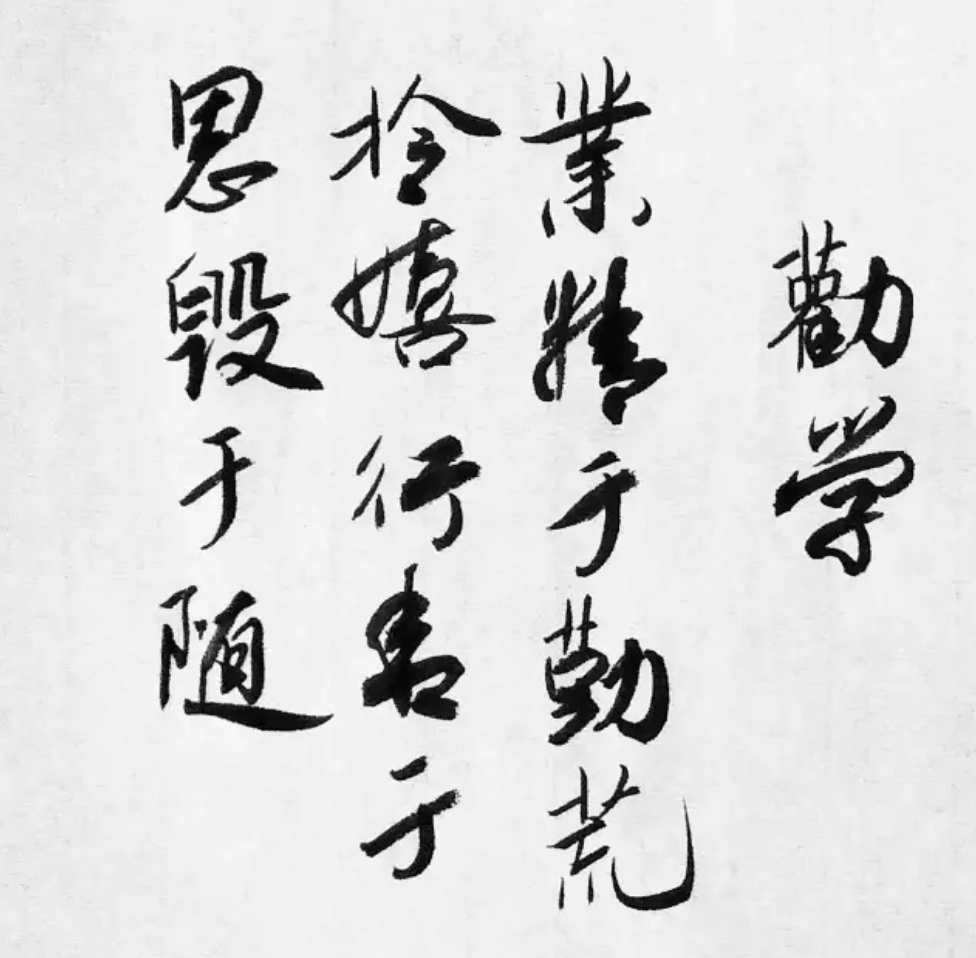 勸学
業精于勤荒
扵嬉行于
思毁于随